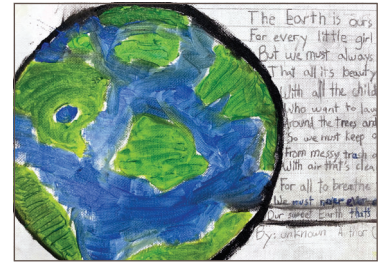 The Earth is ours
For every little girl
But we must always
That all its beauty
With all the child
Who want to lau
Around the trees and
So we must keep o
From messy trash o
With air that's clea
For all to breathe
We must never ever
Our sweet Earth that's
By: unknown Author